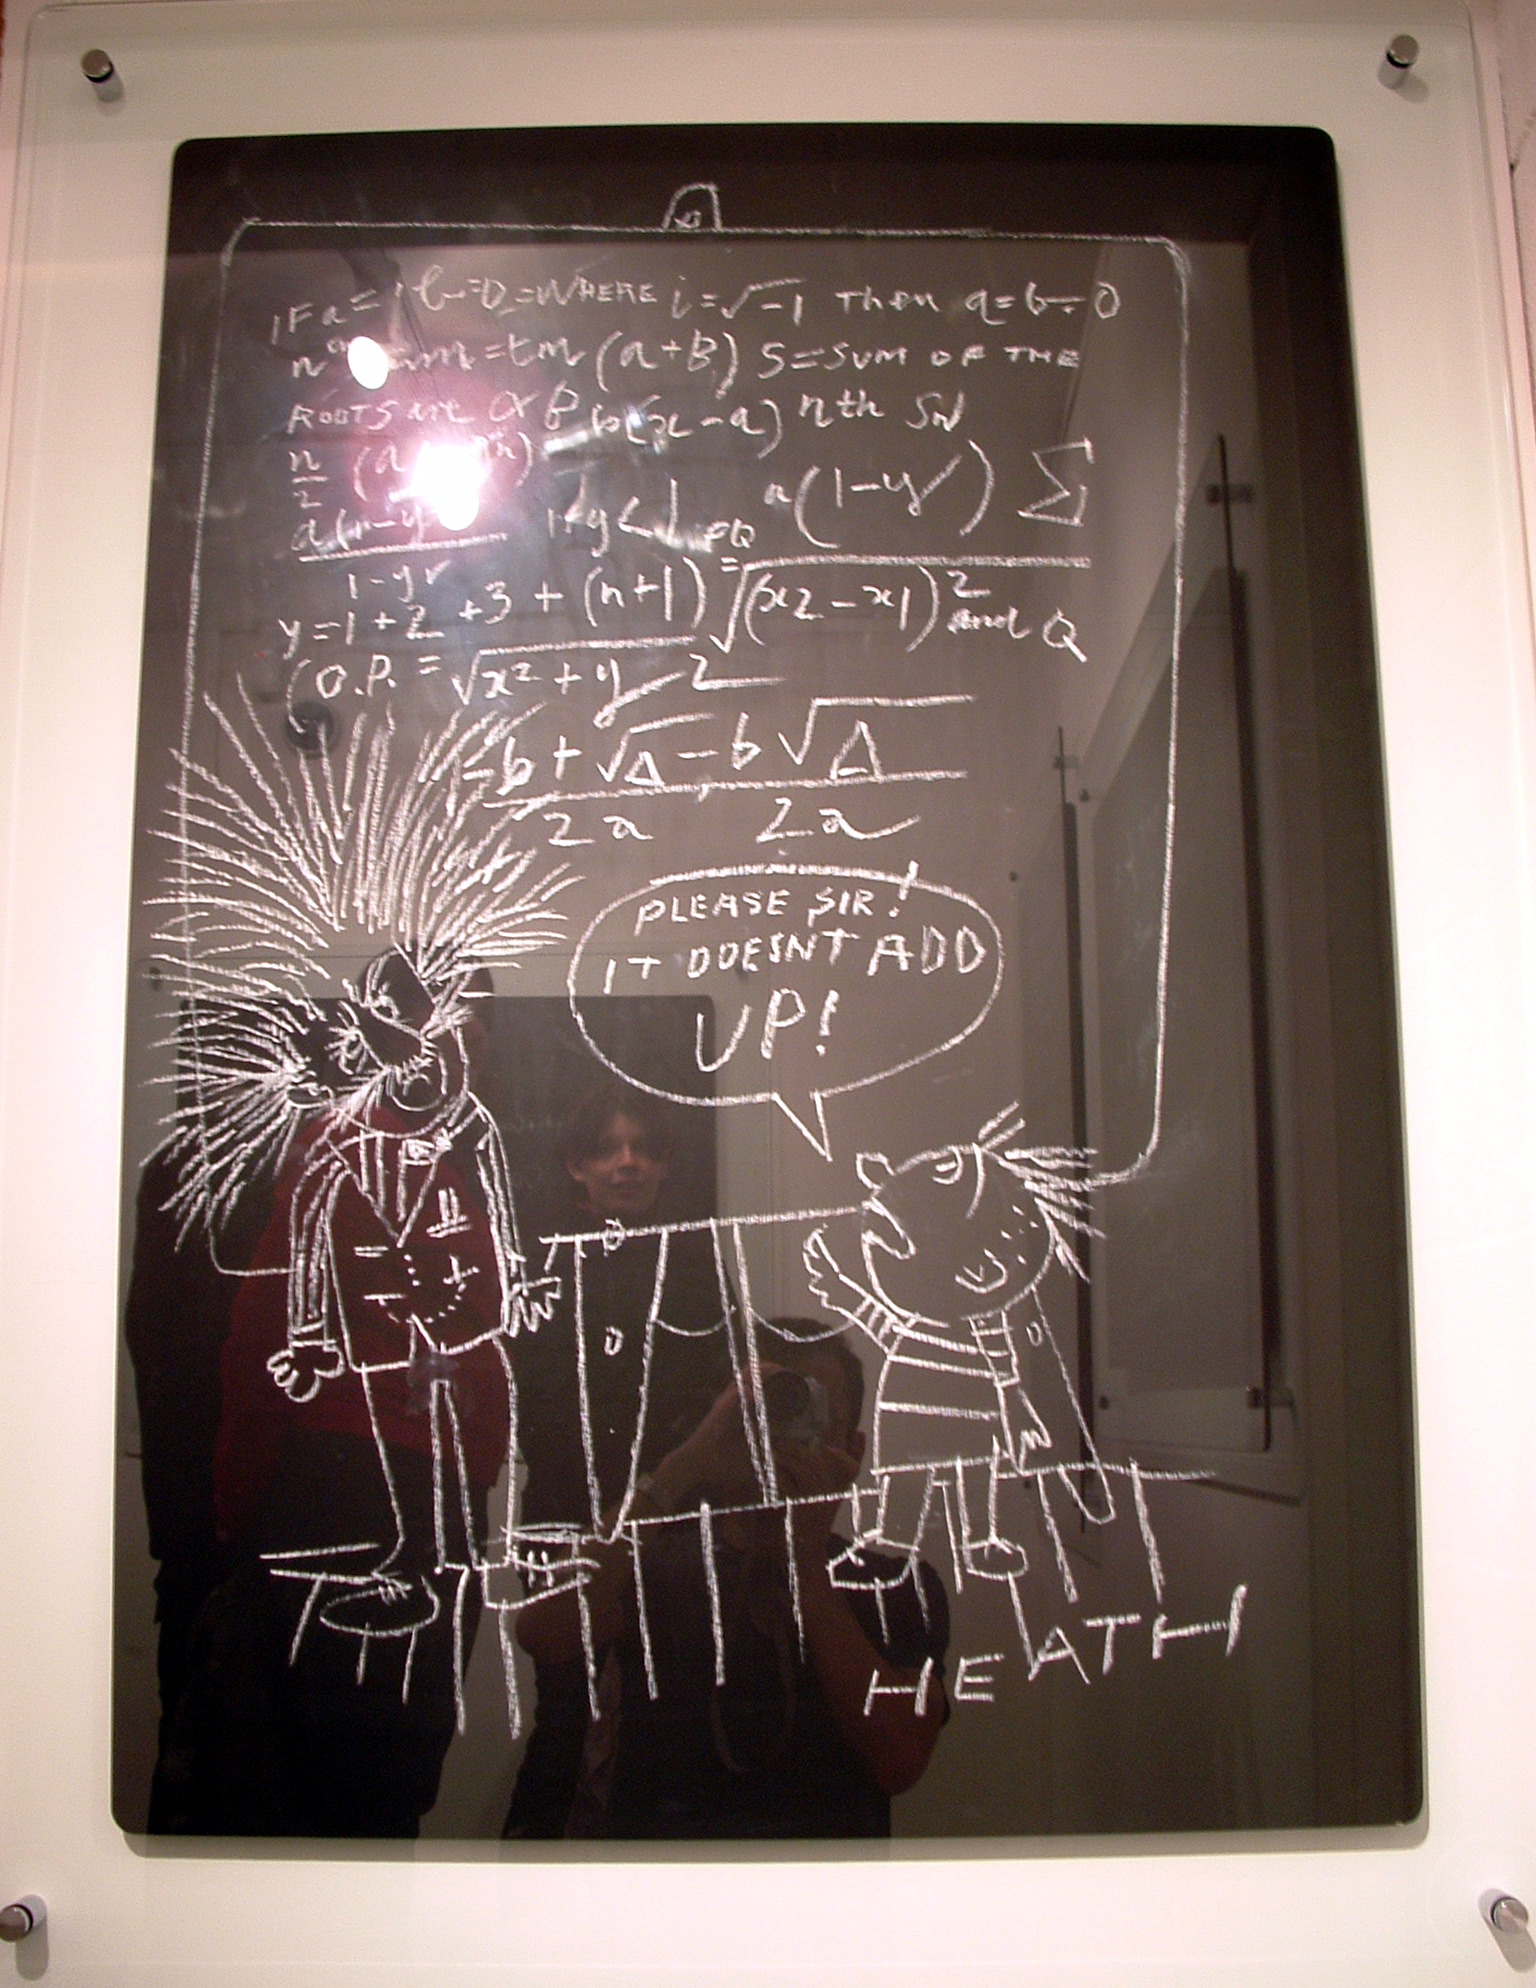 IF a = b=0=WHERE i=√-1 Then a=b=0
=tm (a+B) S=SUM OF THE
ROOTS are α β b(x-a) nth SN
n/2 (a
a(1-y 1<y<1 PQ a(1-y) Σ
1-yr
y=1+2+3+(n+1) =√(x2-x1)² and Q
(O.P.=√x²+y 2
-b+√Δ -b√Δ
2a 2a
PLEASE SIR!
IT DOESNT ADD
UP!
HEATH